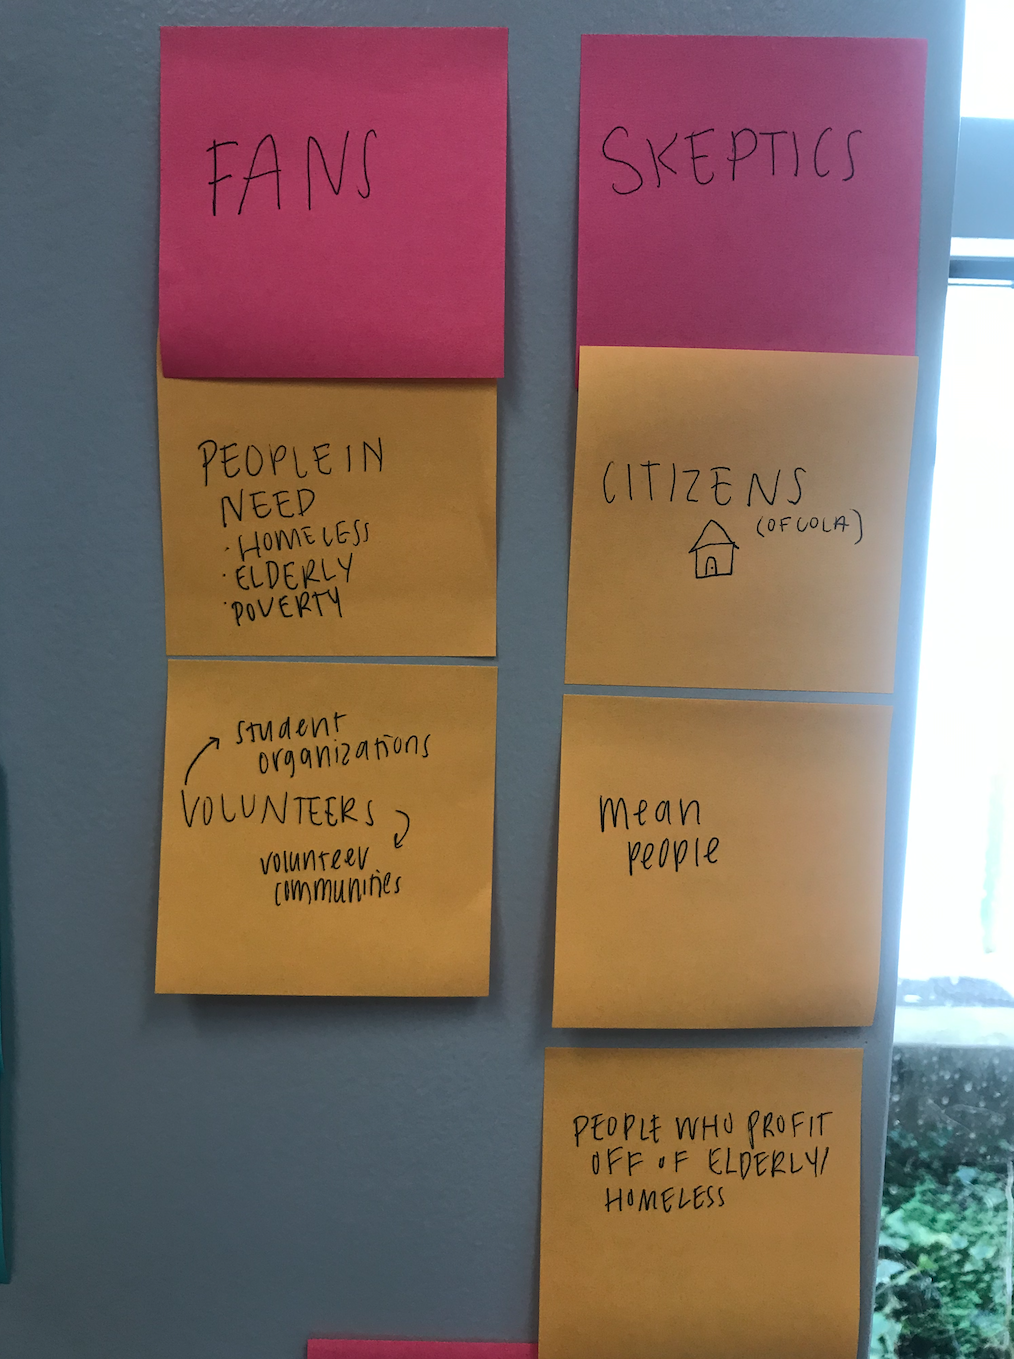 FANS
PEOPLE IN
NEED
· HOMELESS
· ELDERLY
· POVERTY
student
organizations
VOLUNTEERS
volunteer
communities
SKEPTICS
CITIZENS
(OF COLA)
mean
people
PEOPLE WHO PROFIT
OFF OF ELDERLY/
HOMELESS